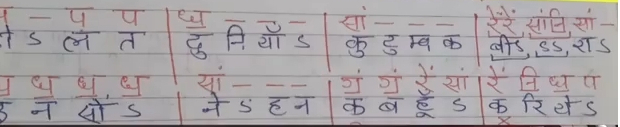 - प प | ध - - - | सां - - - | रेंरें सांनि सां -
ऽ ल त | दु नि याँ ऽ | कु टु म्व क | बीऽ ऽऽ राऽ
ध ध ध | सां - - - | गं गं रें सां | रें नि ध प
न सों ऽ | ने ऽ ह न | क ब हूँ ऽ | क रि ये ऽ